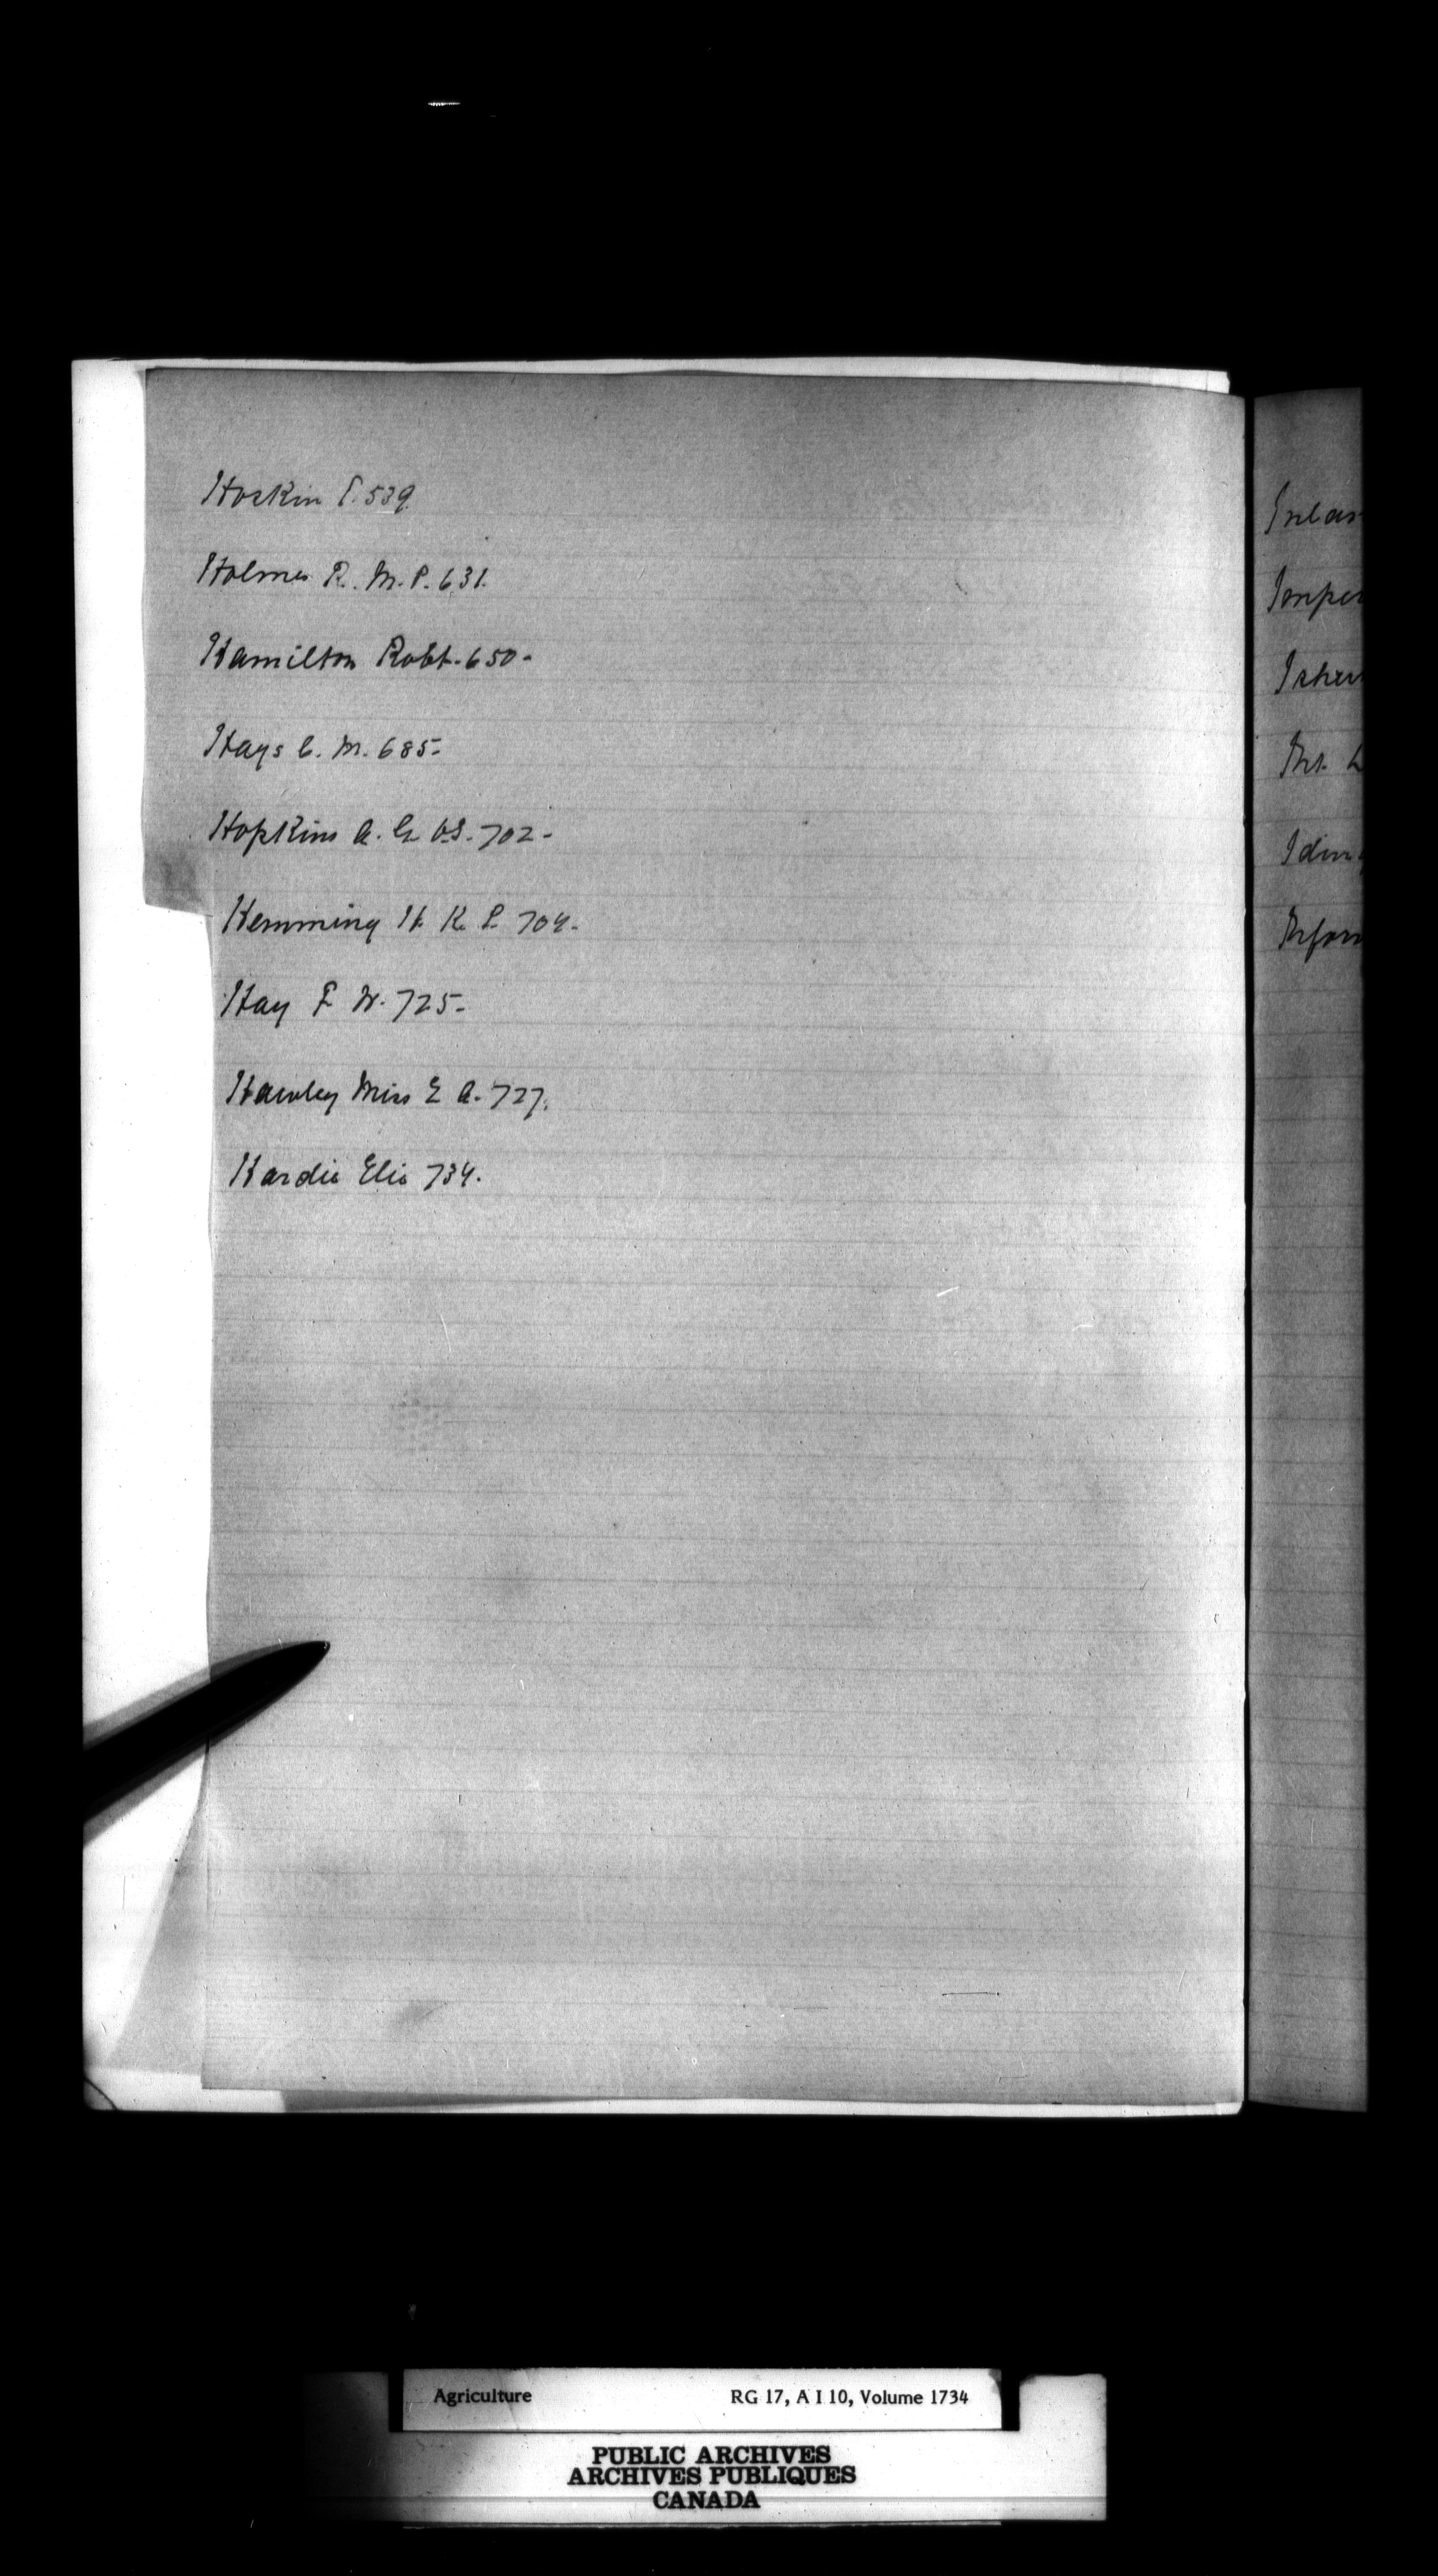 Hoskin P. 539.
Holmes R. M.P. 631.
Hamilton Robt. 650-
Hays C. M. 685-
Hopkins A. G. V.S. 702-
Hemming H. K. P. 704.
Hay F W. 725-
Hawley Miss E A. 727.
Hardie Elie 734.
Agriculture RG 17, A I 10, Volume 1734
PUBLIC ARCHIVES
ARCHIVES PUBLIQUES
CANADA